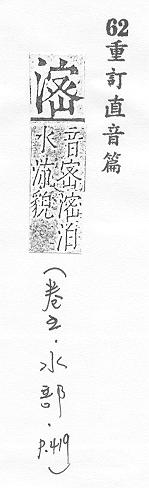 62重訂直音篇
滵
音密滵泊
水流貌
(卷五·水部·P.419)